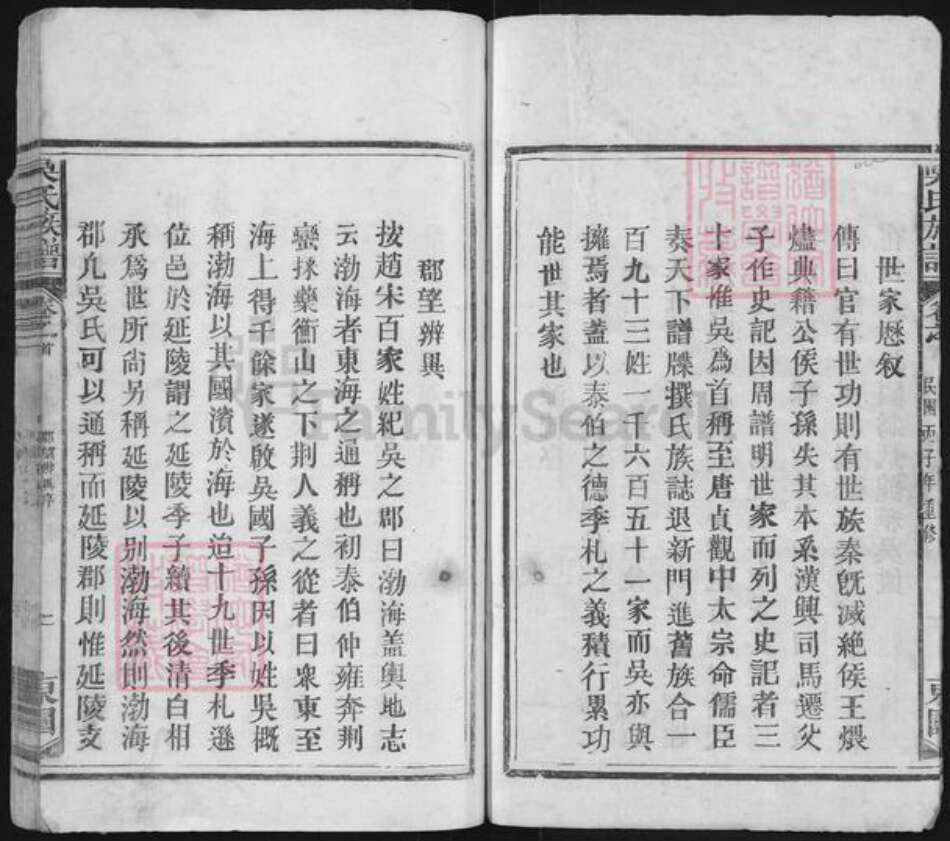 吳氏族譜
民國丙子年重修
世家歷敘
傳曰官有世功則有世族秦旣滅絶侯王煨
燼典籍公侯子孫失其本系漢興司馬遷父
子作史記因周譜明世家而列之史記者三
十家惟吳爲首稱至唐貞觀中太宗命儒臣
奏天下譜牒撰氏族誌退新門進舊族合一
百九十三姓一千六百五十一家而吳亦與
擁焉者蓋以泰伯之德季札之義積行累功
能世其家也
郡望辨異
按趙宋百家姓紀吳之郡曰渤海盖輿地志
云渤海者東海之通稱也初泰伯仲雍奔荆
蠻採藥衡山之下荆人義之從者曰衆東至
海上得千餘家遂啟吳國子孫因以姓吳概
稱渤海以其國濱於海也迨十九世季札遜
位邑於延陵謂之延陵季子續其後清白相
承爲世所尙另稱延陵以别渤海然則渤海
郡凢吳氏可以通稱而延陵郡則惟延陵支
吳氏族譜
卷首
FamilySearch